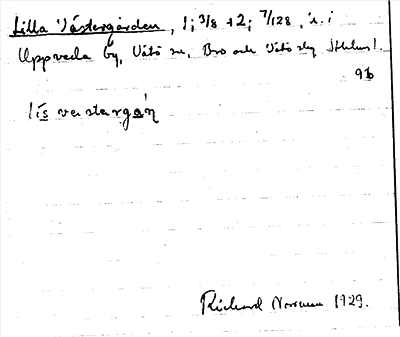 Lilla Västergården, 1; 3/8 + 2; 7/128, i
Uppveda by, Vätö sn, Bro och Vätö skg Sthlms l.
96
lis vestargań
Richard Norrman 1929.